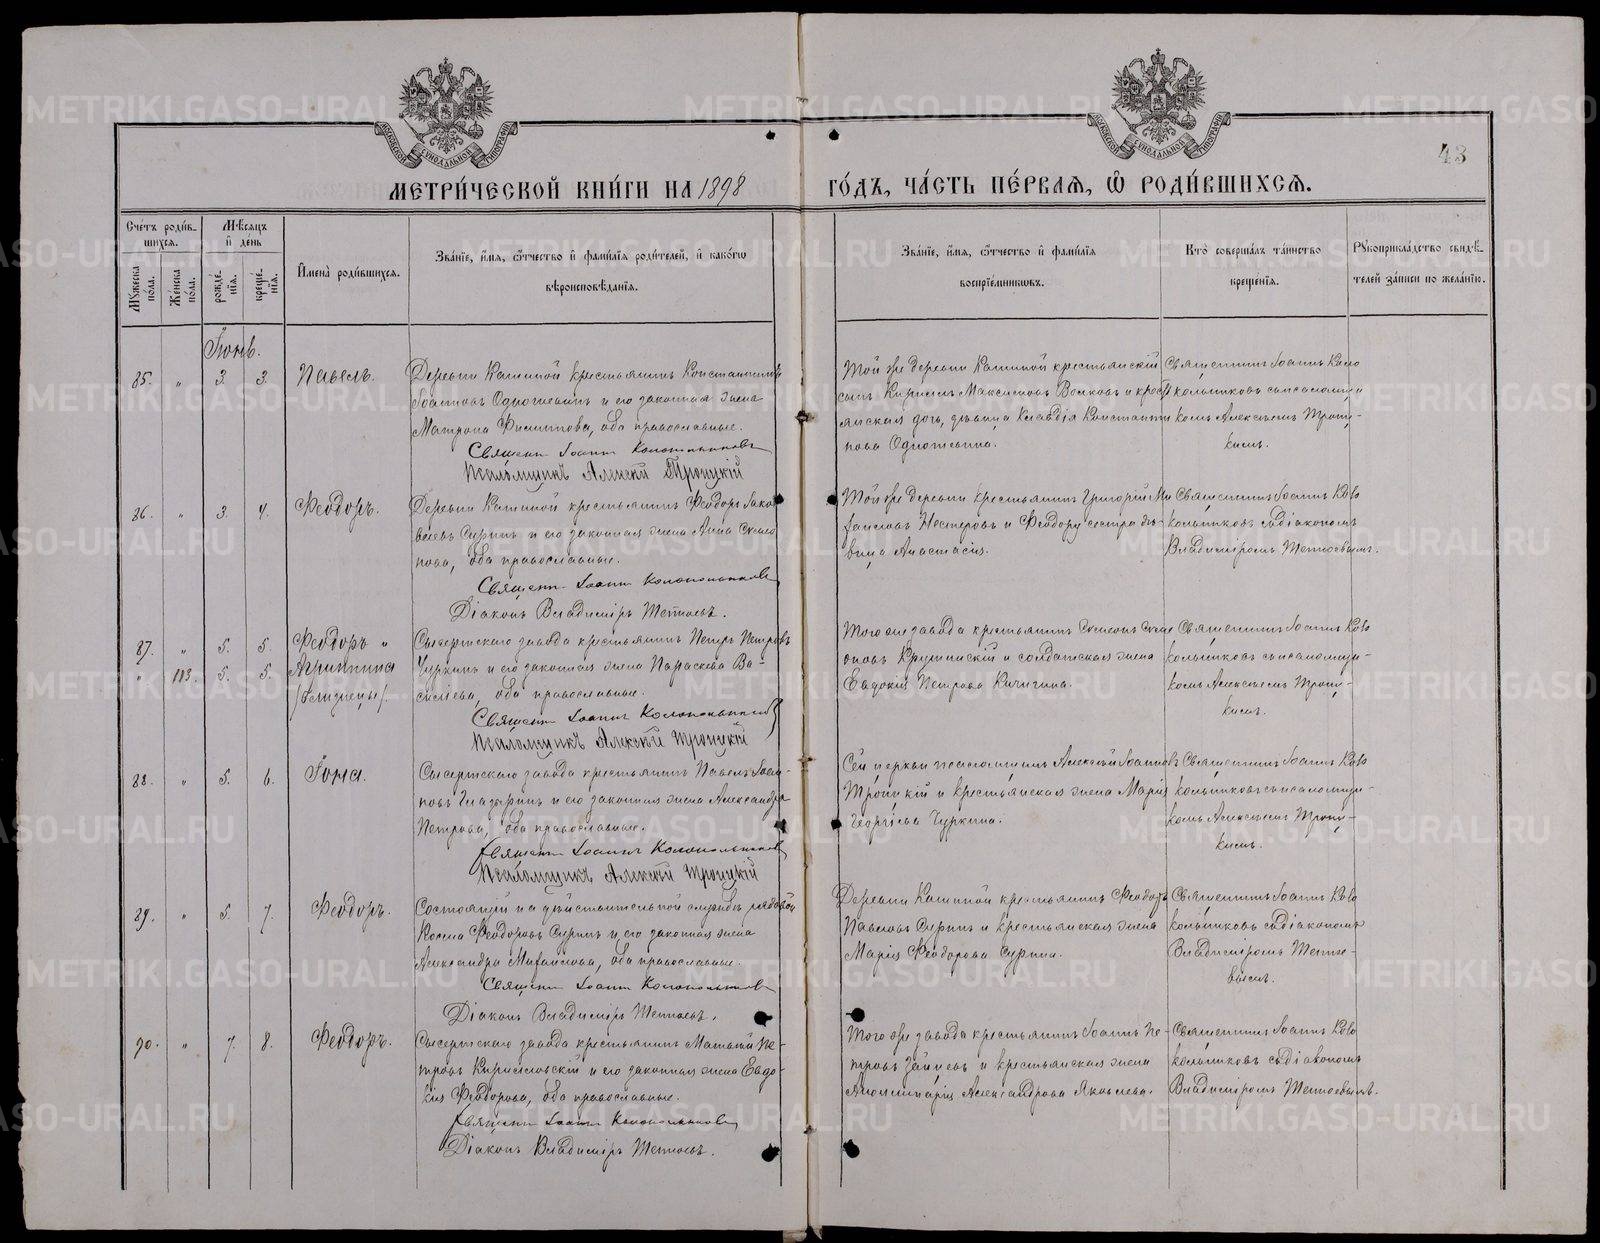 МЕТРИ́ЧЕСКОЙ КНИ́ГИ НА 1898
ГО́ДЪ, ЧА́СТЬ ПЕ́РВАЯ, Ѡ҆ РОДИ́ВШИХСЯ.
43
Сче́тъ роди́в-
шихся.
Му́жеска по́ла.
Же́нска по́ла.
Мѣ́сяцъ
и҆ де́нь
рожде́-
нїя.
креще́-
нїя.
И҆мена̀ роди́вшихся.
Зва́нїе, и҆́мя, ѻ҆́тчество и҆ фами́лїя роди́телей, и҆ како́гѡ
вѣроисповѣ́данїя.
Зва́нїе, и҆́мя, ѻ҆́тчество и҆ фами́лїя
воспрїе́мниковъ.
Кто̀ соверша́лъ та́инство
креще́нїя.
Рꙋкоприкла́дство свидѣ́-
телей за́писи по жела́нїю.
Іюнь.
85. " 3. 3. Павелъ.
Деревни Кашиной крестьянинъ Константинъ
Іоанновъ Одношевинъ и его законная жена
Матрона Филиппова, оба православные.
Священ. Іоаннъ Колокольниковъ
Псаломщикъ Алексѣй Троицкій
Той же деревни Кашиной крестьянскій
сынъ Кириллъ Максимовъ Волковъ и крест
янская дочь, дѣвица Клавдія Константи
нова
Священникъ Іоаннъ Коло
кольниковъ съ псаломщи
комъ Алексѣемъ Троиц-
кимъ.
86. " 3. 4. Ѳеодоръ.
Деревни Кашиной крестьянинъ Ѳеодоръ Іаков
левъ Суринъ и его законная жена Анна Симео
нова, оба православные.
Священ. Іоаннъ Колокольниковъ
Діаконъ Владимиръ
Той же деревни крестьянинъ Григорій Ми
хаиловъ Нестеровъ и Ѳеодору сестра дѣ-
вица Анастасія.
Священникъ Іоаннъ Коло
кольниковъ съ діакономъ
Владимиромъ
87. " 5. 5. Ѳеодоръ "
" 113. 5. 5. Агриппина
/близнецы/.
Сысертскаго завода крестьянинъ Петръ Петровъ
Чуркинъ и его законная жена Параскева Ва-
сильева, оба православные.
Священ. Іоаннъ Колокольниковъ
Псаломщикъ Алексѣй Троицкій
Того же завода крестьянинъ Симеонъ Симе
оновъ и солдатская жена
Евдокія Петрова Кичигина.
Священникъ Іоаннъ Коло
кольниковъ съ псаломщи-
комъ Алексѣемъ Троиц-
кимъ.
88. " 5. 6. Іона.
Сысертскаго завода крестьянинъ Павелъ Іоан-
новъ Глазыринъ и его законная жена Александра
Петрова, оба православные.
Священ. Іоаннъ Колокольниковъ
Псаломщикъ Алексѣй Троицкій
Сей церкви псаломщикъ Алексѣй Іоанновъ
Троицкій и крестьянская жена Марія
Георгіева Чуркина.
Священникъ Іоаннъ Коло
кольниковъ съ псаломщи-
комъ Алексѣемъ Троиц-
кимъ.
89. " 5. 7. Ѳеодоръ.
Состоящій на дѣйствительной службѣ рядовой
Косма Ѳеодоровъ Суринъ и его законная жена
Александра Михаилова, оба православные.
Священ. Іоаннъ Колокольниковъ
Діаконъ Владимиръ
Деревни Кашиной крестьянинъ Ѳеодоръ
Павловъ Суринъ и крестьянская жена
Марія Ѳеодорова Сурина.
Священникъ Іоаннъ Коло
кольниковъ съ діакономъ
Владимиромъ
90. " 7. 8. Ѳеодоръ.
Сысертскаго завода крестьянинъ Матѳей Пе-
тровъ Кирилловскій и его законная жена Евдо-
кія Ѳеодорова, оба православные.
Священ. Іоаннъ Колокольниковъ
Діаконъ Владимиръ
Того же завода крестьянинъ Іоаннъ Пе-
тровъ Зайцевъ и крестьянская жена
Аполлинарія Александрова Яковлева.
Священникъ Іоаннъ Коло
кольниковъ съ діакономъ
Владимиромъ
METRIKI.GASO-URAL.RU